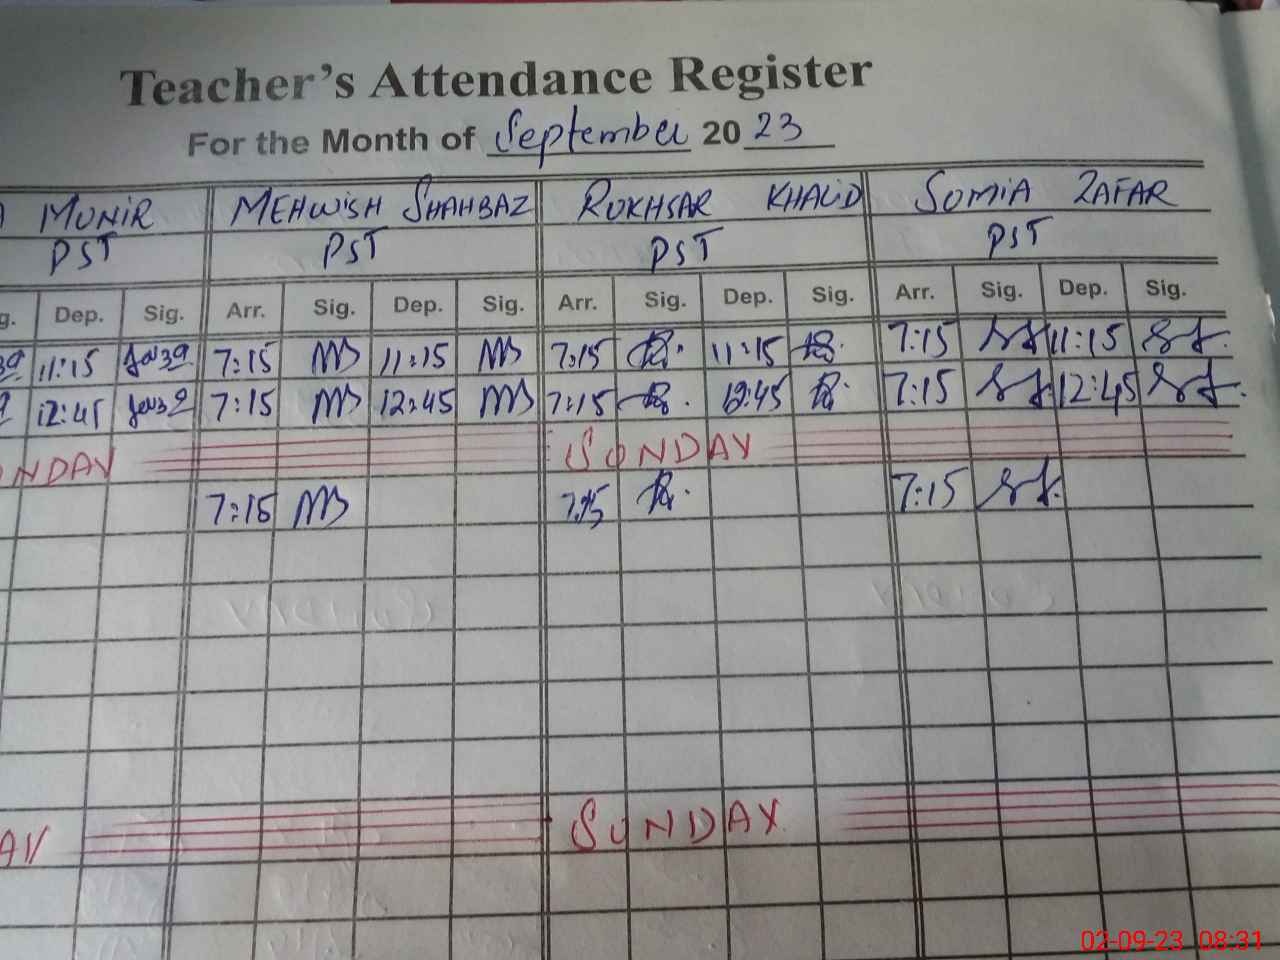 Teacher's Attendance Register
For the Month of September 2023
MUNIR MEHWISH SHAHBAZ RUKHSAR KHALID SOMIA ZAFAR
PST PST PST PST
g. Dep. Sig. Arr. Sig. Dep. Sig. Arr. Sig. Dep. Sig. Arr. Sig. Dep. Sig.
11:15 7:15 MB 11:15 MB 7:15 11:15 7:15 11:15
12:45 7:15 MB 12:45 MB 7:15 12:45 7:15 12:45
UNDAY SUNDAY
7:15 MB 7:15 7:15
AY SUNDAY
02-09-23 08:31